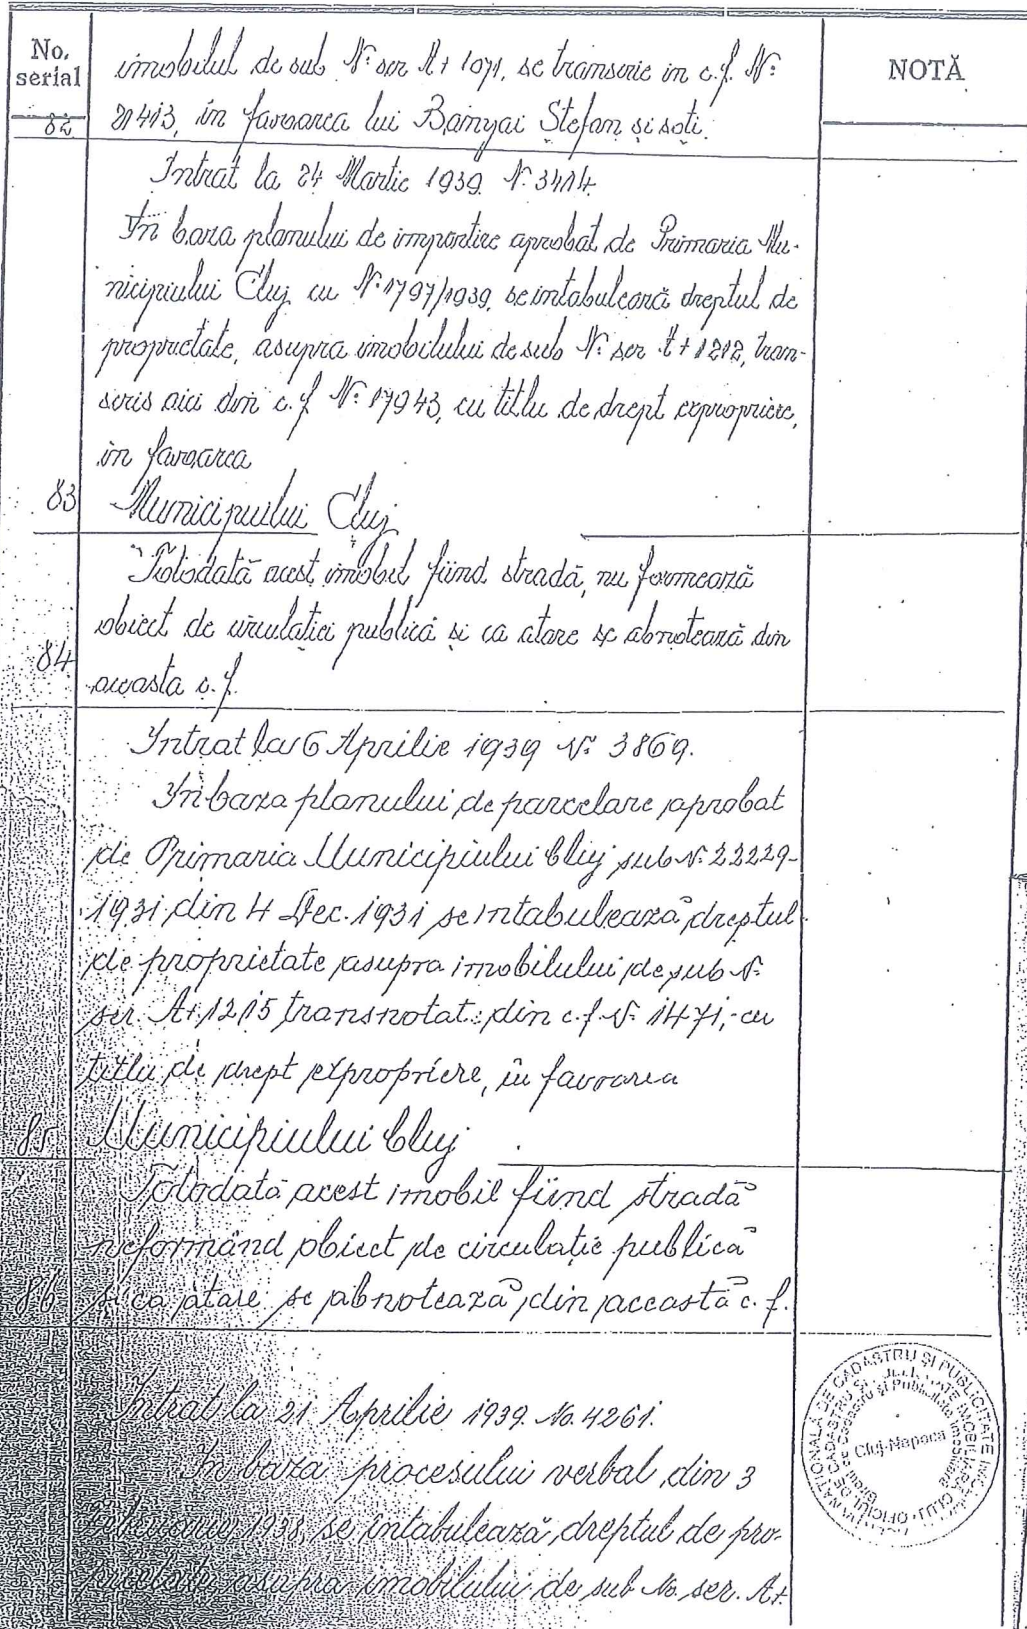 No.
serial
NOTĂ
imobilul de sub Nr. ser A+ 1071, se transcrie in c.f. Nr.
82
21413, in favoarea lui Banyai Ștefan și soți.
Intrat la 24 Martie 1939. Nr. 3414.
In baza planului de impartire aprobat de Primaria Mu-
nicipiului Cluj cu Nr. 1797/1939, se intabulează dreptul de
proprietate, asupra imobilului de sub Nr. ser A+ 1212, tran-
scris aici din c.f. Nr. 17943, cu titlu de drept expropriere,
in favoarea
83
Municipiului Cluj
Totodată acest imobil fiind stradă, nu formează
obiect de circulației publică și ca atare se abnotează din
84
aceasta c.f.
Intrat la 6 Aprilie 1939 Nr. 3869.
In baza planului de parcelare aprobat
de Primaria Municipiului Cluj sub Nr. 22229-
1931 din 4 Dec. 1931 se intabulează dreptul
de proprietate asupra imobilului de sub Nr.
ser. A+ 1215 transnotat din c.f. Nr. 1471, cu
titlu de drept expropriere, in favoarea
85
Municipiului Cluj
Totodată acest imobil fiind stradă
neformând obiect de circulație publică
86
și ca atare se abnotează din această c.f.
Intrat la 21 Aprilie 1939. No. 4261.
In baza procesului verbal din 3
1938, se intabulează dreptul de pro-
prietate asupra imobilului de sub No. ser. A+
NAȚIONALĂ DE CADASTRU ȘI PUBLICITATE IMOBILIARĂ
OFICIUL DE CADASTRU ȘI PUBLICITATE IMOBILIARĂ CLUJ
Biroul de Cadastru și Publicitate Imobiliară
Cluj-Napoca